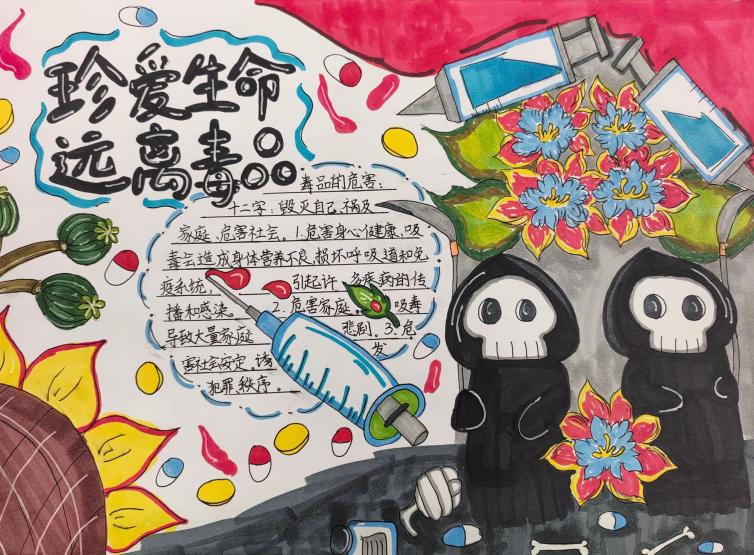 珍爱生命
远离毒品
毒品的危害:
十二字:毁灭自己,祸及
家庭、危害社会。1.危害身心健康,吸
毒会造成身体营养不良,损坏呼吸道和免
疫系统, 引起许多疾病的传
播和感染。 2.危害家庭。 吸毒
导致大量家庭 悲剧、3.危
害社会安定、诱 发
犯罪秩序。